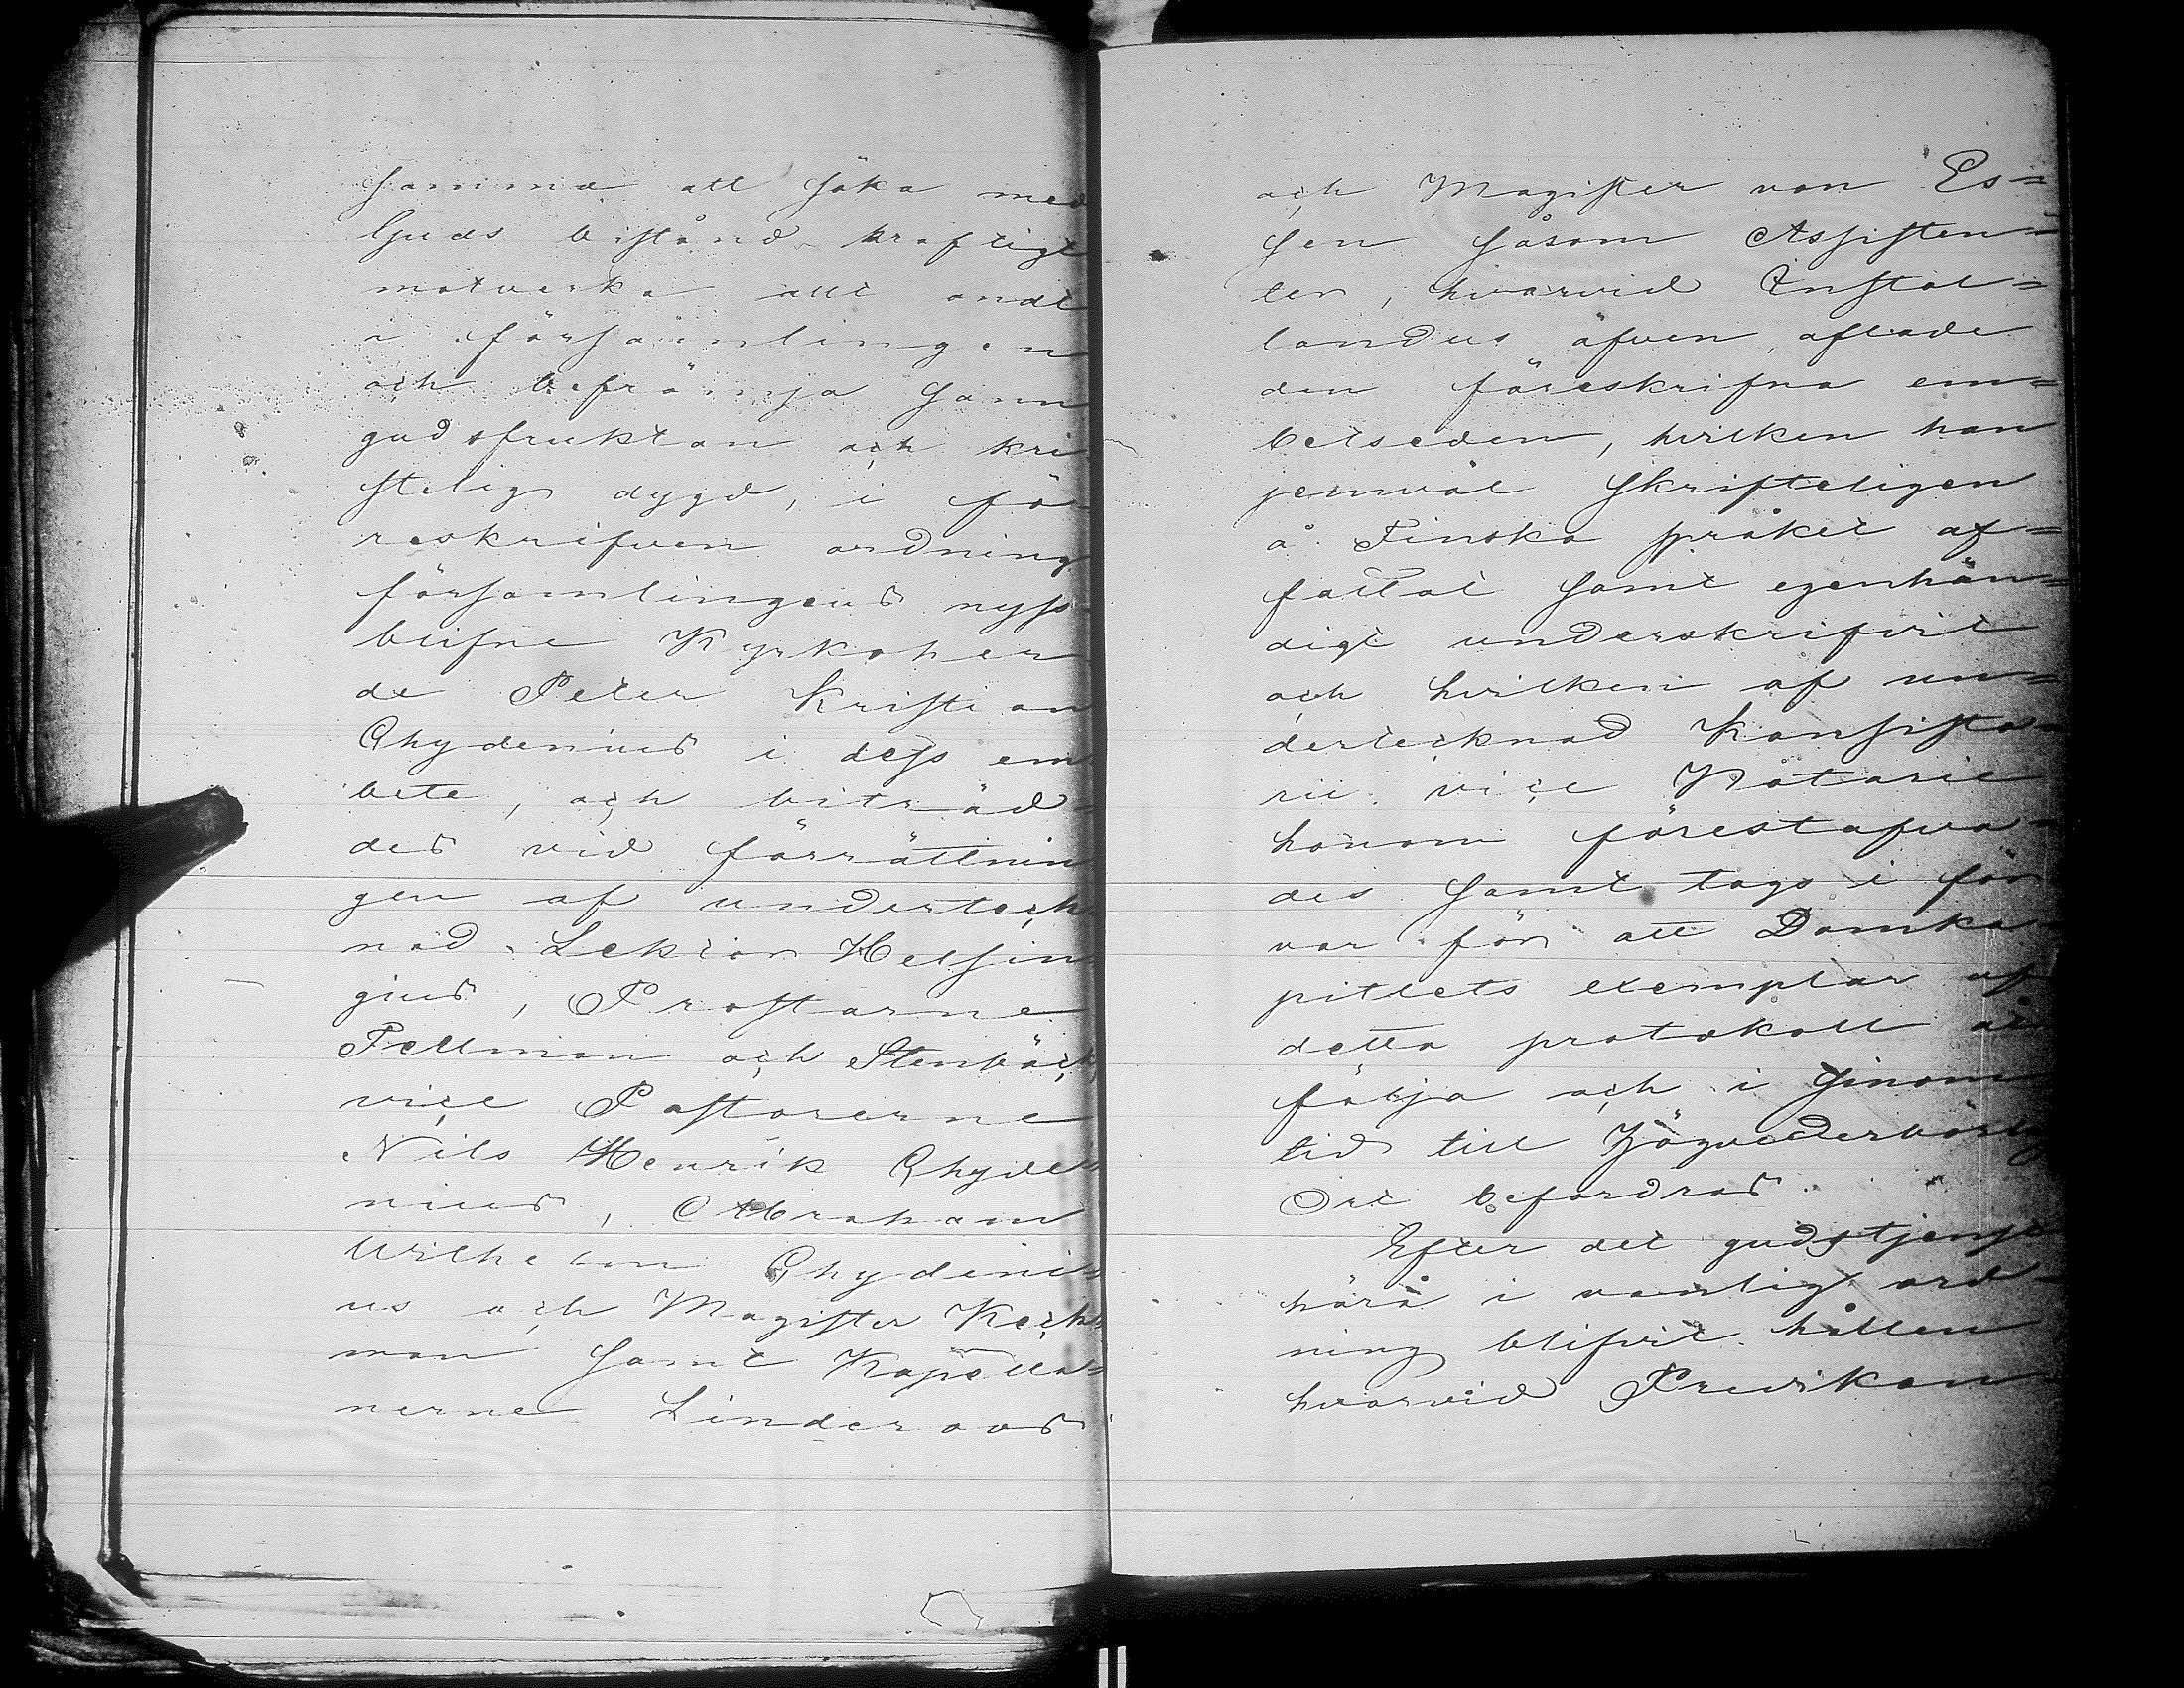 samma att söka med
Guds bistånd kraftigt
motverka allt ondt
i församlingen
och befrämja sann
gudsfruktan och kri
stelig dygd, i fö-
reskrifven ordning
församlingens nyss
blifne Kyrkoher
de Peter Kristian
Chydenius i dess em
bete, och biträd-
des vid förrättnin
gen af underteck
nad Lektor Helsin
gius, Prostarne
Fellman och Stenbäck,
vice Pastorerne
Nils Henrik Chyde=
nius, Abraham
Wilhelm Chydeni=
us och Magister Keck=
man samt Kapella=
nerne Linderoos
och Magister von Es=
sen såsom Assisten=
ter, hvarvid Instal=
landus äfven aflade
den föreskrifna em=
betseden, hvilken han
jemväl skrifteligen
å Finska språket af=
fattat samt egenhän=
digt underskrifvit
och hvilken af un=
dertecknad Konsisto=
rii vice Notarie
honom förestafva=
des samt togs i för
var för att Domka=
pitlets exemplar af
detta protokoll åt
följa och i sinom
tid till högvederbörlig
Ort befordras.
Efter det gudstjenst
härå i vanlig ord-
ning blifvit hållen
hvarvid Predikan